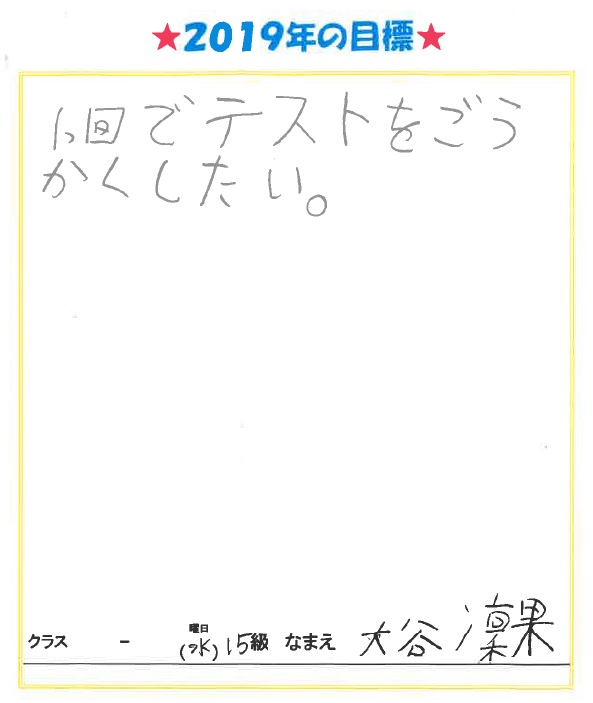 ★2019年の目標★
1回でテストをごう
かくしたい。
クラス － 曜日(水) 15級 なまえ 大谷 凜果